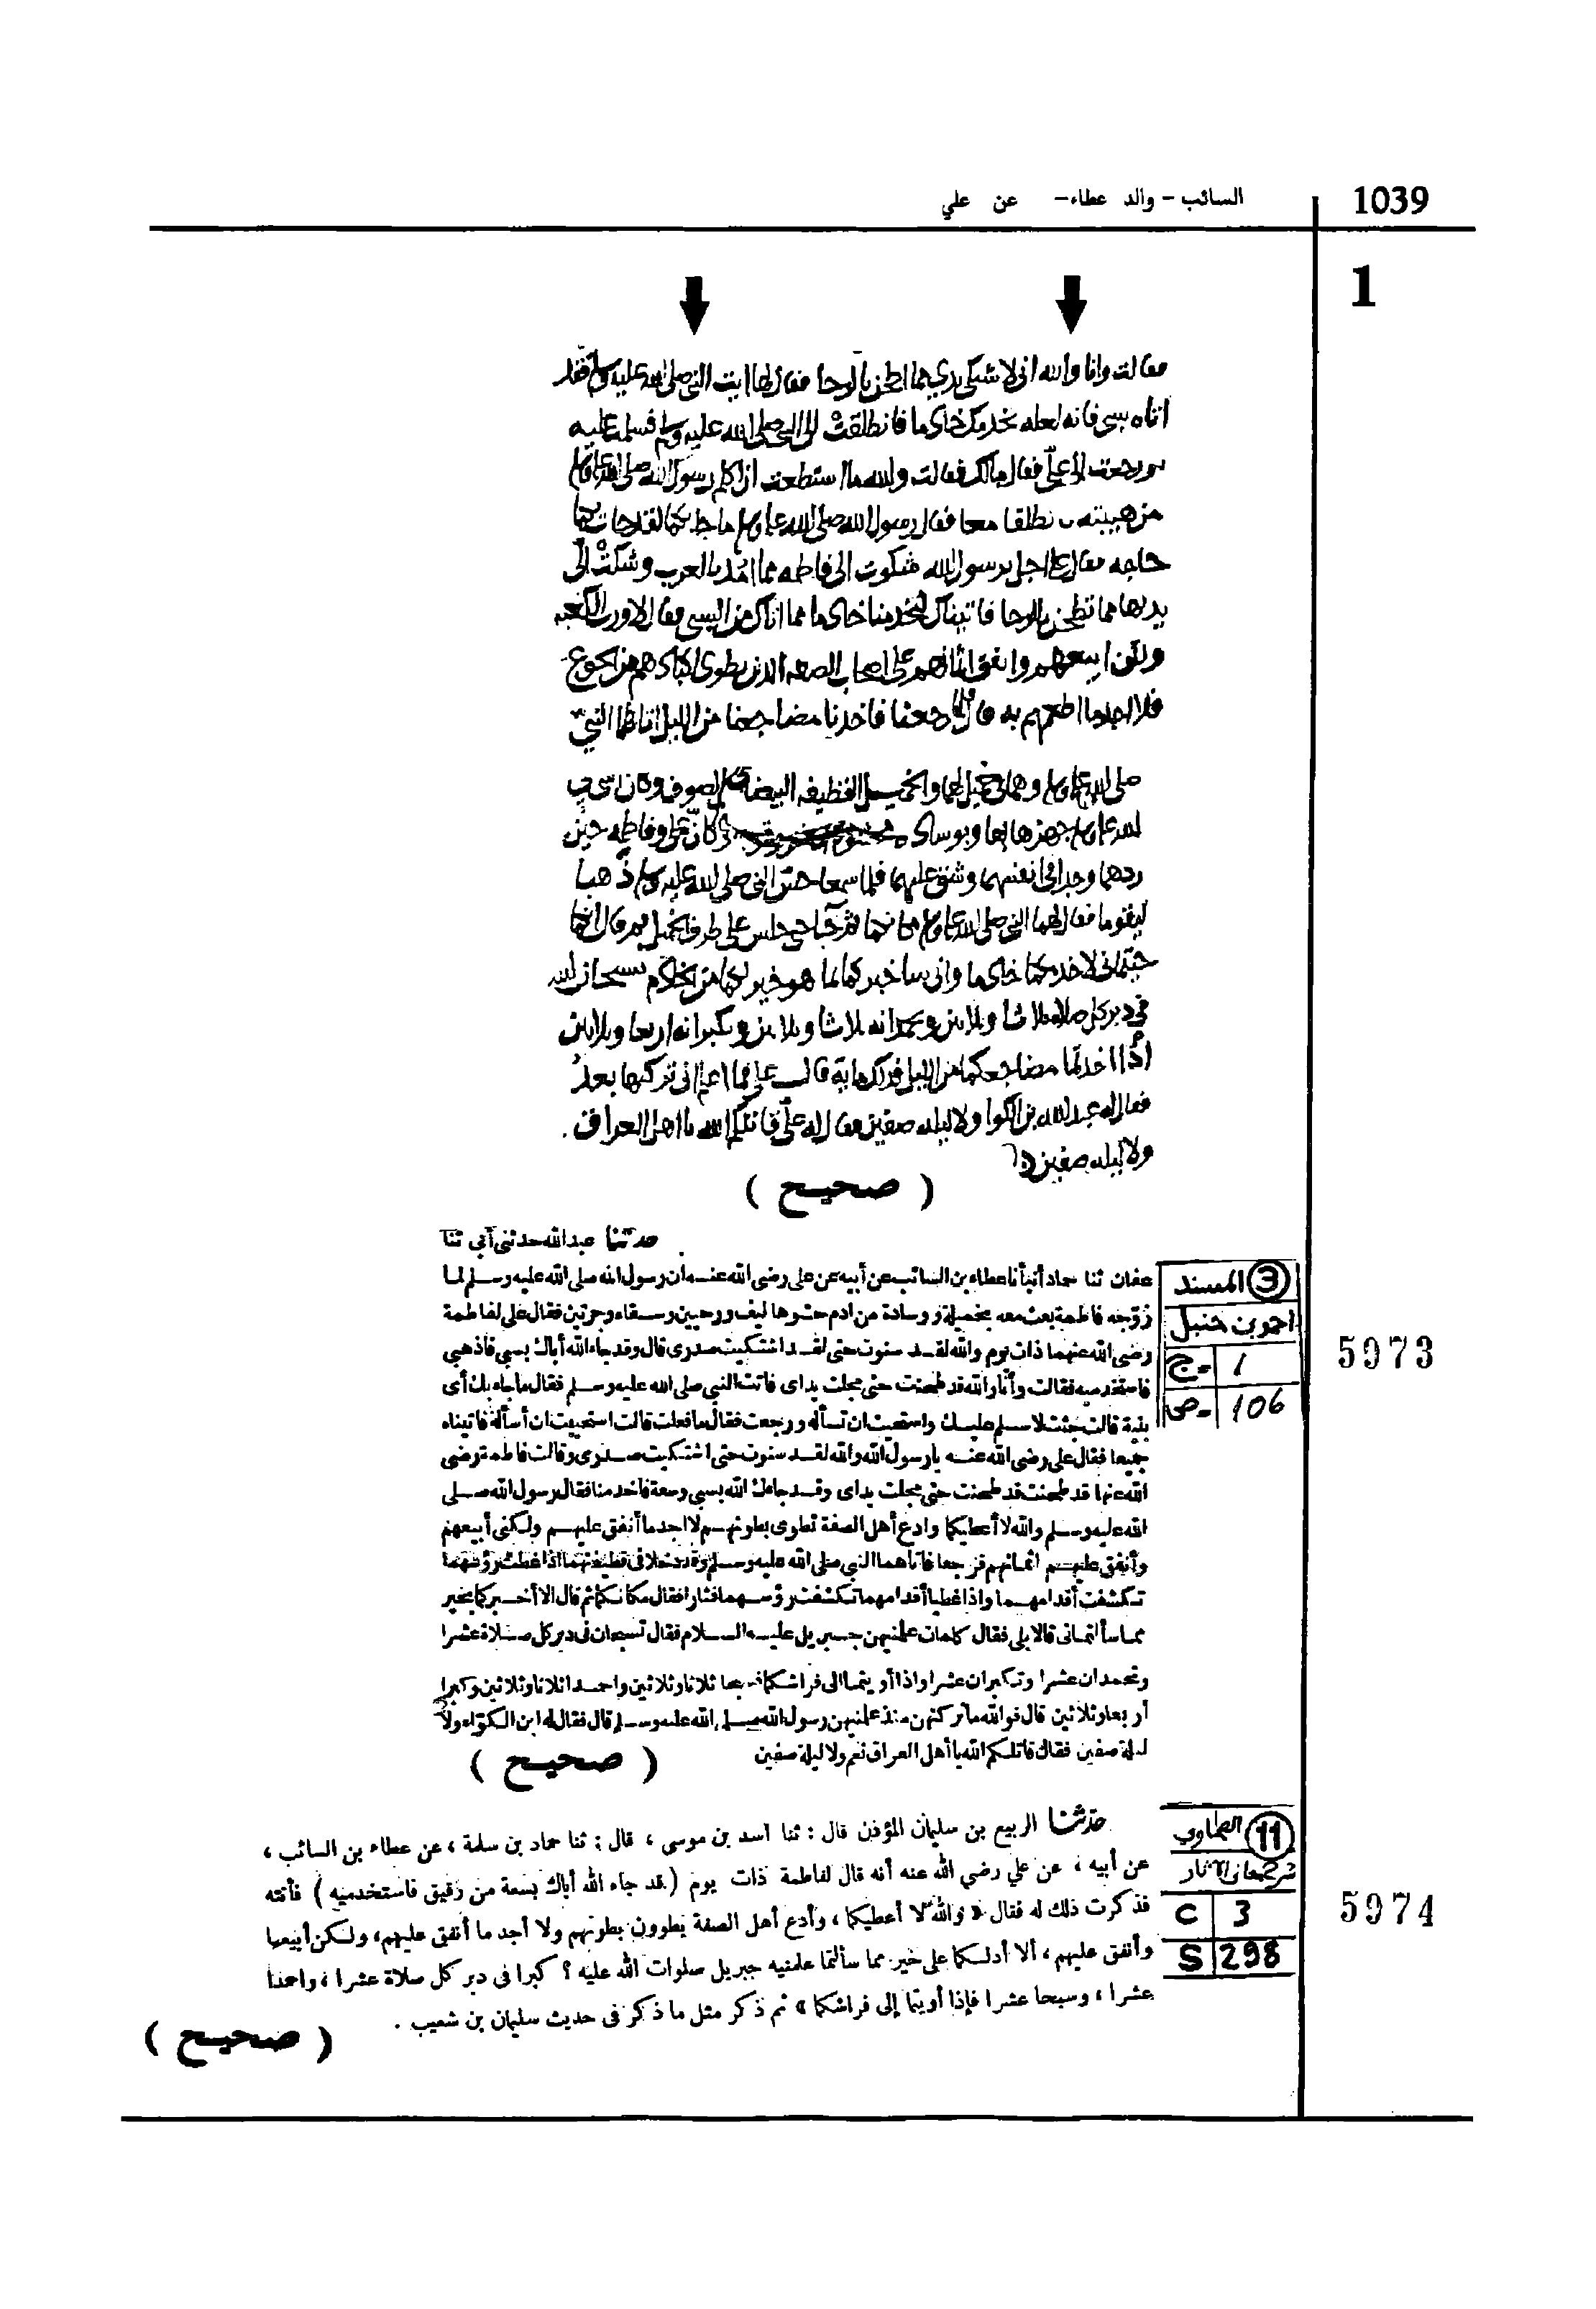 1039
السائب - والد عطاء - عن علي
1
فقالت وانا والله اني لاشتكي يدي مما اطحن بالرحا فقال لها ايت النبي صلى الله عليه وسلم فقد
اتاه سبي فانه لعله يخدمك خادما فانطلقت الى النبي صلى الله عليه وسلم فسلمت عليه
ورجعت الى علي فقال مالك فقالت والله ما استطعت ان اكلم رسول الله صلى الله عليه وسلم
من هيبته فانطلقا معا فقال رسول الله صلى الله عليه وسلم ما جا بكما لقد جات بكما
حاجه فقال علي اجل يرسول الله شكوت الى فاطمه مما امد بالغرب وشكت الي
يديها مما تطحن بالرحا فاتيناك لتخدمنا خادما مما اتاك من السبي فقال لا ورب الكعبه
ولكن ابيعهم وانفق اثمانهم على اصحاب الصفه الذين تطوى اكبادهم من الجوع
فلا اجد ما اطعمهم به قال فلما رجعنا فاخذنا مضاجعنا من الليل اتانا النبي
صلى الله عليه وسلم وهما في خميل لهما والخميل القطيفه البيضا من الصوف وكان نبي
الله عليه وسلم جهزها بها وبوساده وكان علي وفاطمه حين
ردهما وجدا في انفسهما وشق عليهما فلما سمعا حس النبي صلى الله عليه وسلم ذهبا
ليقوما فقال لهما النبي صلى الله عليه وسلم مكانكما ثم جا حتى جلس على طرف الخميل ثم قال انكما
جيتماني لاخدمكما خادما واني ساخبركما بما هو خير لكما من الخادم تسبحان الله
في دبر كل صلاه ثلاثا وثلاثين وتحمدانه ثلاثا وثلاثين وتكبرانه اربعا وثلاثين
اذا اخذتما مضاجعكما من الليل فذلك مايه قال علي فما اعلم اني تركتها بعد
فقال له عبد الله بن الكوا ولا ليله صفين فقال له علي قاتلكم الله يا اهل العراق .
ولا ليله صفين
( صحيح )
حدثنا عبدالله حدثني أبي ثنا
عفان ثنا حماد أنبأنا عطاء بن السائب عن أبيه عن على رضى الله عنه ان رسول الله صلى الله عليه وسلم لما
زوجه فاطمة بعث معه بخميلة ووسادة من ادم حشوها ليف ورحيين وسقاء وجرتين فقال على لفاطمة
رضى الله عنهما ذات يوم والله لقد سنوت حتى لقد اشتكيت صدرى قال وقد جاء الله أباك بسبي فاذهبي
فاستخدميه فقالت وأنا والله قد طحنت حتى مجلت يداى فاتت النبي صلى الله عليه وسلم فقال ما جاء بك أى
بنية قالت جئت لاسلم عليك واستحيت ان تسأله ورجعت فقال ما فعلت قالت استحييت ان أسأله فاتيناه
جميعا فقال على رضى الله عنه يا رسول الله والله لقد سنوت حتى اشتكيت صدرى وقالت فاطمة رضى
الله عنها قد طحنت قد طحنت حتى مجلت يداى وقد جاءك الله بسبي وسعة فاخدمنا فقال رسول الله صلى
الله عليه وسلم والله لا أعطيكما وادع أهل الصفة تطوى بطونهم لا اجد ما أنفق عليهم ولكنى أبيعهم
وأنفق عليهم اثمانهم فرجعا فاتاهما النبي صلى الله عليه وسلم وقد دخلا فى قطيفتهما اذا غطت رؤسهما
تكشفت أقدامهما واذا غطيا أقدامهما تكشفت رؤسهما فثارا فقال مكانكما ثم قال الا أخبركما بخير
مما سألتمانى قالا بلى فقال كلمات علمنيهن جبريل عليه السلام فقال تسبحان فى دبر كل صلاة عشرا
وتحمدان عشرا وتكبران عشرا واذا أويتما الى فراشكما فسبحا ثلاثا وثلاثين واحمدا ثلاثا وثلاثين وكبرا
أربعا وثلاثين قال فو الله ما تركتهن منذ علمنيهن رسول الله صلى الله عليه وسلم قال فقال له ابن الكواء ولا
ليلة صفين فقال قاتلكم الله يا أهل العراق نعم ولا ليلة صفين
( صحيح )
3 المسند
احمد بن حنبل
ج - 1
ص - 106
5973
حدثنا الربيع بن سليمان المؤذن قال : ثنا أسد بن موسى ، قال : ثنا حماد بن سلمة ، عن عطاء بن السائب ،
عن أبيه ، عن علي رضي الله عنه أنه قال لفاطمة ذات يوم ( قد جاء الله أباك بسعة من رقيق فاستخدميه ) فأتته
فذكرت ذلك له فقال « والله لا أعطيكما ، وأدع أهل الصفة يطوون بطونهم ولا أجد ما أنفق عليهم، ولكن أبيعها
وأنفق عليهم ، ألا أدلكما على خير مما سألتما علمنيه جبريل صلوات الله عليه ؟ كبرا في دبر كل صلاة عشرا ، واحمدا
عشرا ، وسبحا عشرا فإذا أويتما إلى فراشكما » ثم ذكر مثل ما ذكر في حديث سليمان بن شعيب .
( صحيح )
11 الطحاوي
شرح معاني الآثار
C 3
S 298
5974